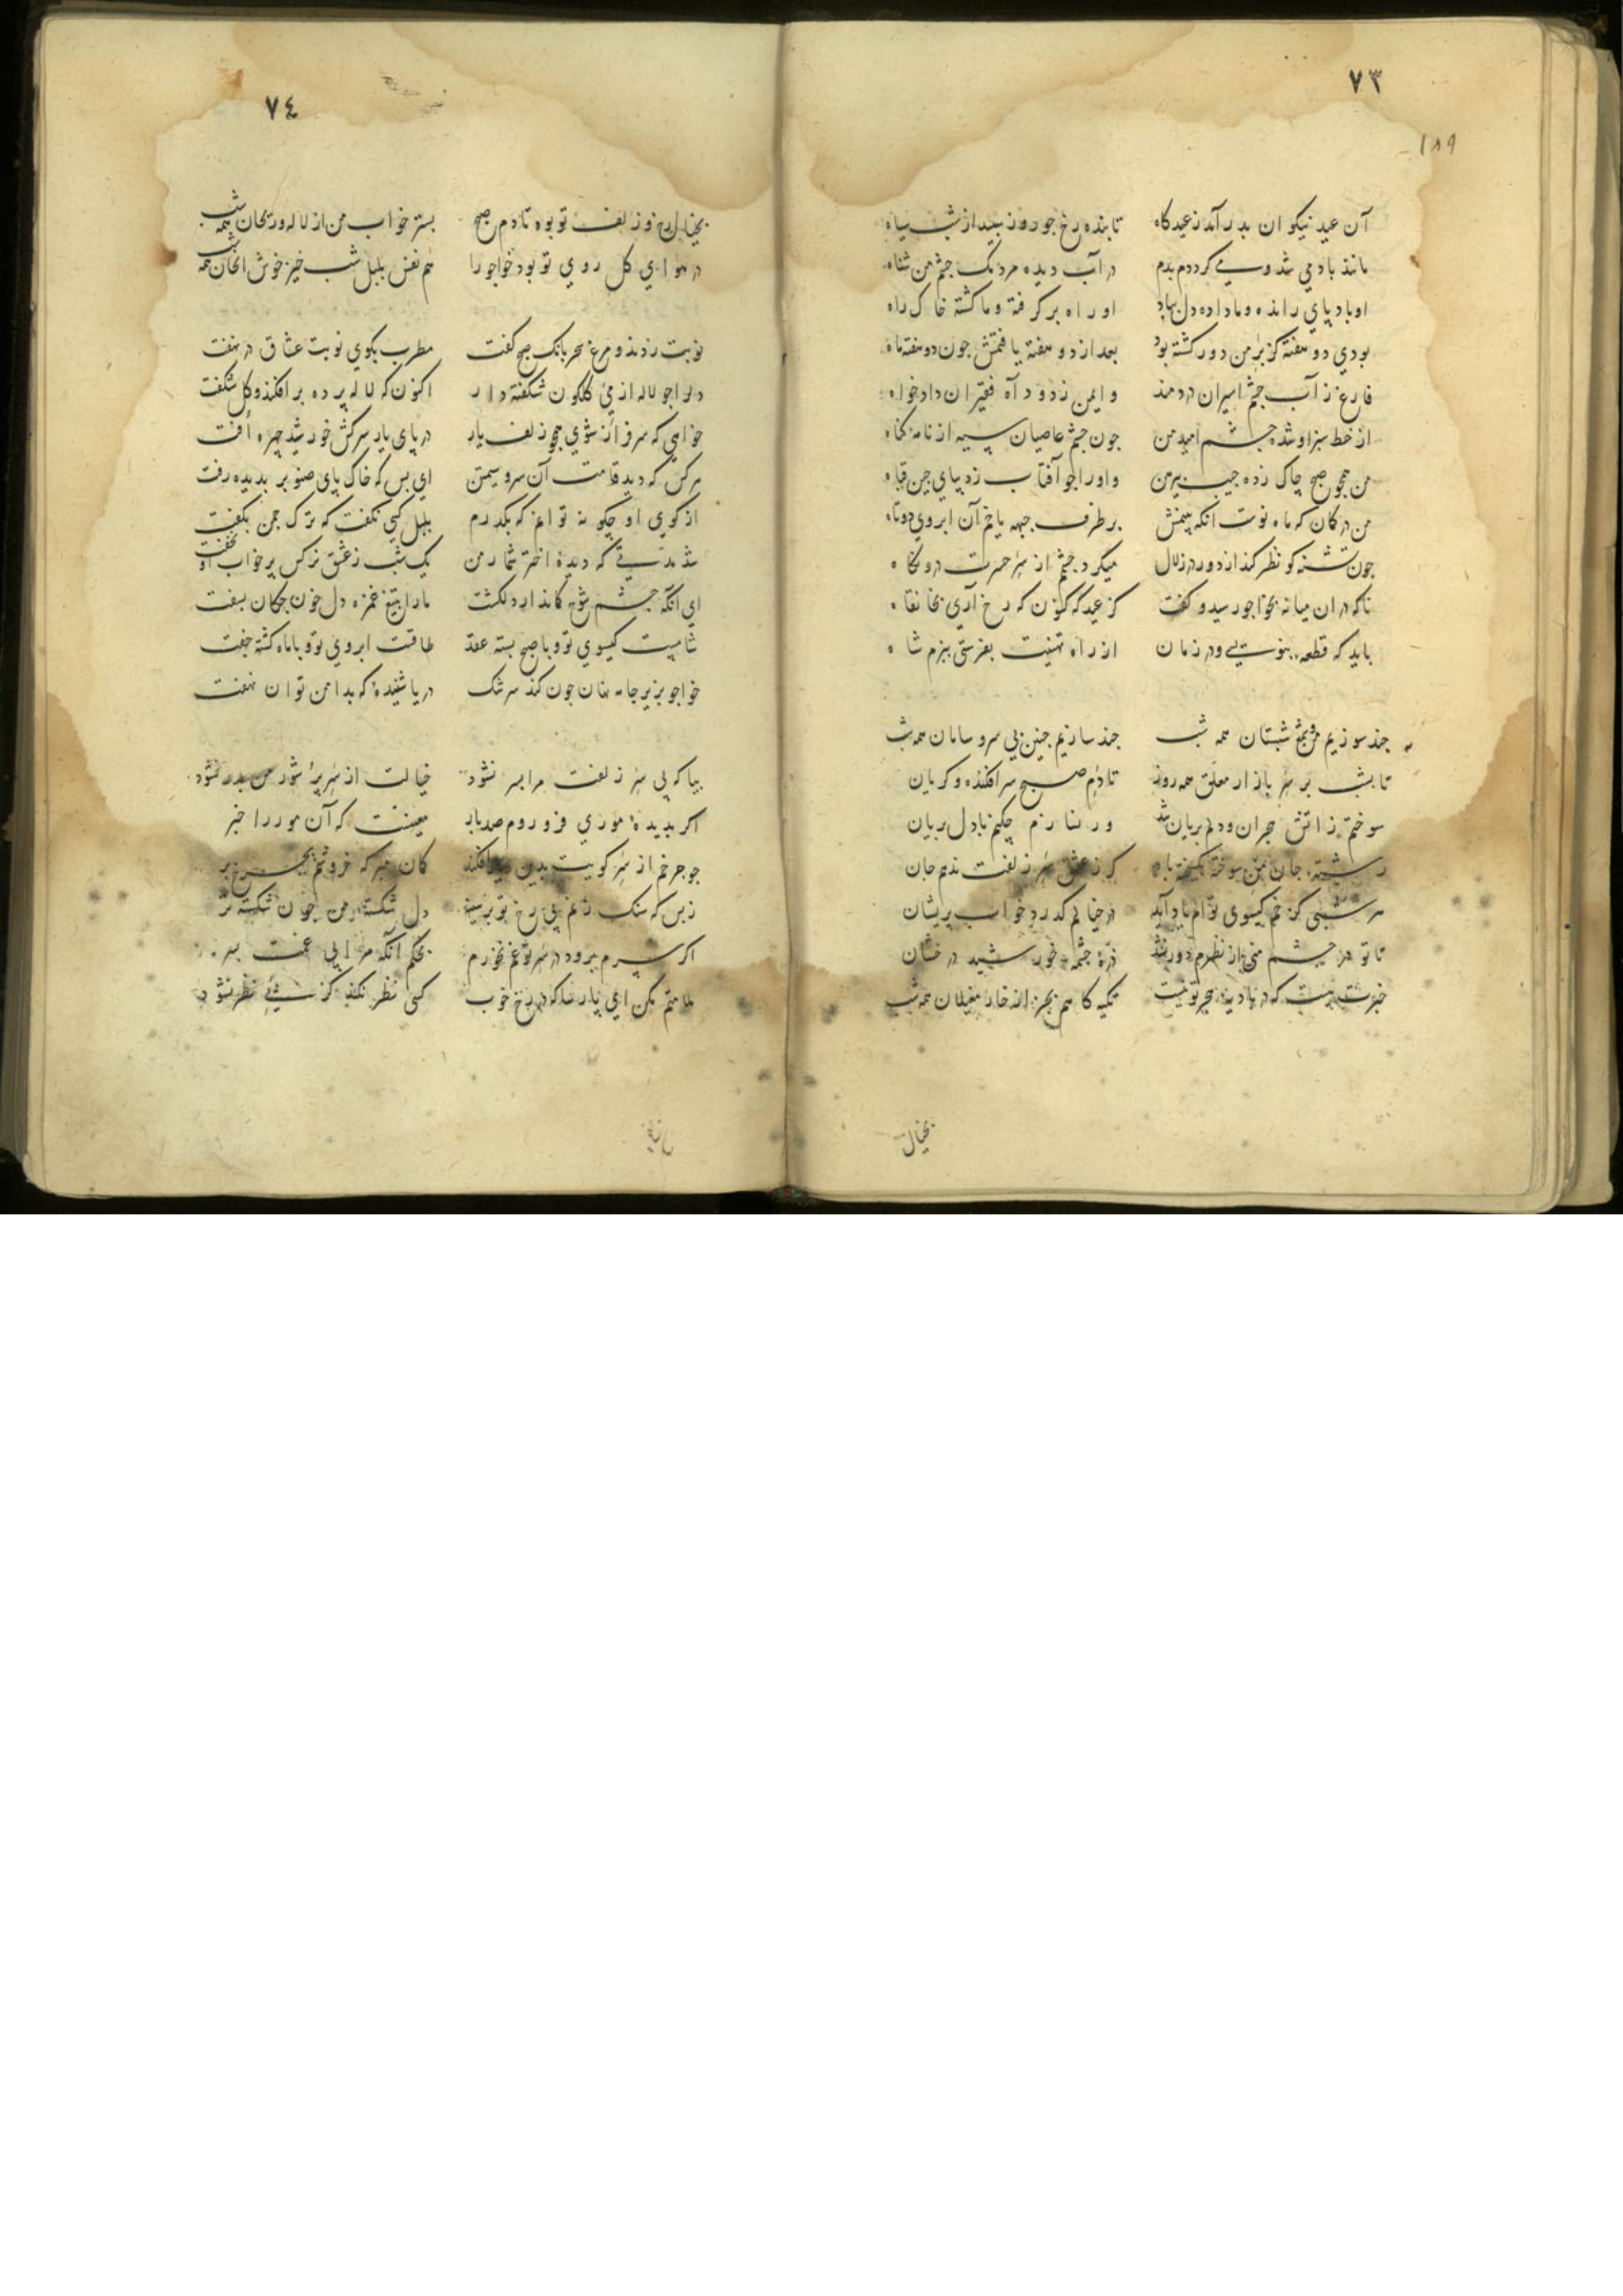 ٧٣
١٨٩
آن عید نیکوان بدر آمد ز عیدکاه تابنده رخ جو روز سپید از شب سیاه
مانند باد می شد و می کرد دم بدم در آب دیده مردمک جشم من شناه
او باد پای رانده و ما داده دل بباد او راه برکرفته و ما کشته خاک راه
بودی دو هفته کز بر من دور کشته بود بعد از دو هفته یافتمش جون دو هفته ماه
فارغ ز آب جشم اسیران دردمند و ایمن ز دود آه فقیران دادخواه
از خط سبز او شده جشم امید من جون جشم عاصیان سیه از نامه کناه
من همجو صبح چاک زده جیب پیرهن و او را جو آفتاب ز دیبای جین قباه
من در کمان که ماه نوست آنکه بینمش برطرف جبهه یا خم آن ابروی دوتاه
جون تشنه کو نظر کند از دور در زلال میکرد جشم از سر حسرت درو نکاه
ناکه در آن میانه بخواجو رسید و کفت کز عیدکه کنون که رخ آری بخانقاه
باید که قطعه بنویسی و در زمان از راه تهنیت بفرستی ببزم شاه
جند سوزیم من و شمع شبستان همه شب جند سازیم جنین بی سر و سامان همه شب
تا بشب بر سر بازار معلق همه روز تا دم صبح سرافکنده و کریان
سوختم ز آتش هجران و دلم بریان شد ور نسازم چکنم با دل بریان
رشته جان من سوخته بکسیخته باد کر ز عشق سر زلفت ندهم جان
هر شبی کز خم کیسوی توام یاد آید در خیالم کذرد خواب پریشان
تا تو در جشم منی از نظرم دور نشد ذره جشمه خورشید درخشان
خبرت نیست که در بادیه هجر تو نیست تکیه کاهم بجز از خار مغیلان همه شب
بخیال
٧٤
بخیال رخ و زلف تو بود تا دم صبح بستر خواب من از لاله و ریحان همه شب
در هوای کل روی تو بود خواجو را هم نفس بلبل شب خیز خوش الحان همه
نوبت زدند و مرغ سحر بانک صبح کفت مطرب بکوی نوبت عشاق در نهفت
دلرا جو لاله از می کلکون شکفته دار اکنون که لاله پرده برافکند و کل شکفت
خواهی که سرفراز شوی همجو زلف یار در پای یار سرکش خورشید چهره افت
هر کس که دید قامت آن سرو سیمتن ای بس که خاک پای صنوبر بدیده رفت
از کوی او جکونه توانم که بکذرم بلبل کسی نکفت که ترک جمن بکفت
شد مدتی که دیده اختر شمار من یک شب ز عشق نرکس پرخواب او نخفت
ای آنکه جشم شوخ کماندار دلکشت ما را بتیغ غمزه دل خون جکان بسفت
شامیست کیسوی تو و با صبح بسته عقد طاقت ابروی تو و با ماه کشته جفت
خواجو بزیر جامه نهان جون کند سرشک دریا شنیده که بدامن توان نهفت
بیا که بی سر زلفت مرا بسر نشود خیالت از سر پر شور من بدر نشود
اکر بدیده موری فرو روم صد بار معینست که آن مور را خبر
جو جرخم از سر کویت بدین کمان مبر که خروشم بجرخ بر
ز بس که سنک ز غم بی رخ تو بر سینه دل شکسته من جون شکسته تر
اکر سرم برود در سر تو غم نخورم بحکم آنکه مرا بی غمت بسر
ملامتم مکن ای پارسا که در رخ خوب کسی نظر نکند کز پی نظر نشود